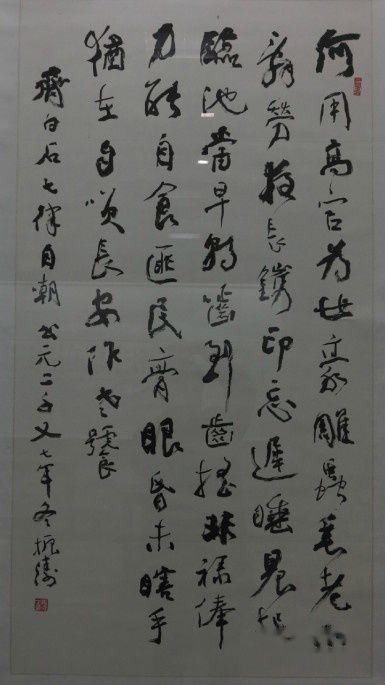 何用高官为世豪雕蟲垂老不
辞劳夜長鐫印忘遲睡晨起
臨池當早朝齧到齒搖非禄俸
力能自食匪民膏眼昏未瞎手
猶在自笑長安作老饕
齊白石七律自嘲公元二千又七年冬